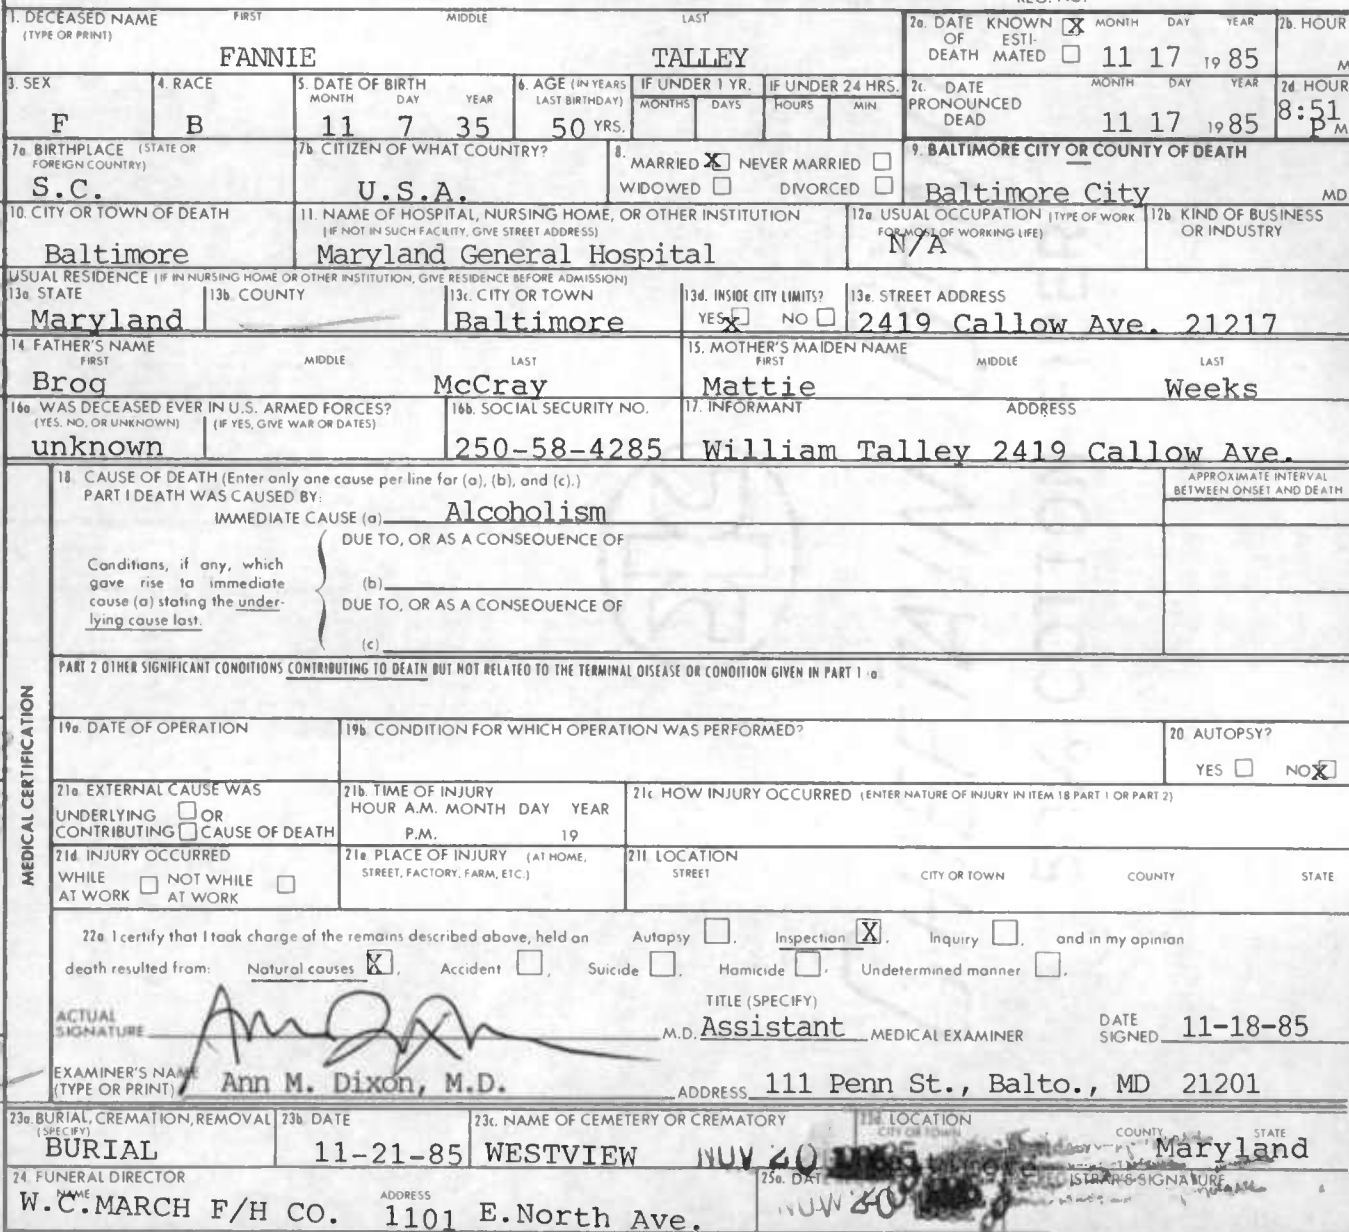 1. DECEASED NAME (TYPE OR PRINT) FIRST MIDDLE LAST
FANNIE TALLEY
2a. DATE OF DEATH KNOWN X ESTIMATED MONTH DAY YEAR
11 17 1985
2b. HOUR M
3. SEX
F
4. RACE
B
5. DATE OF BIRTH MONTH DAY YEAR
11 7 35
6. AGE (IN YEARS LAST BIRTHDAY)
50 YRS.
IF UNDER 1 YR. MONTHS DAYS
IF UNDER 24 HRS. HOURS MIN
2c. DATE PRONOUNCED DEAD MONTH DAY YEAR
11 17 1985
2d HOUR
8:51 P M
7a BIRTHPLACE (STATE OR FOREIGN COUNTRY)
S.C.
7b. CITIZEN OF WHAT COUNTRY?
U.S.A.
8. MARRIED X NEVER MARRIED
WIDOWED DIVORCED
9. BALTIMORE CITY OR COUNTY OF DEATH
Baltimore City MD
10. CITY OR TOWN OF DEATH
Baltimore
11. NAME OF HOSPITAL, NURSING HOME, OR OTHER INSTITUTION
(IF NOT IN SUCH FACILITY, GIVE STREET ADDRESS)
Maryland General Hospital
12a USUAL OCCUPATION (TYPE OF WORK FOR MOST OF WORKING LIFE)
N/A
12b. KIND OF BUSINESS OR INDUSTRY
USUAL RESIDENCE (IF IN NURSING HOME OR OTHER INSTITUTION, GIVE RESIDENCE BEFORE ADMISSION)
13a STATE
Maryland
13b. COUNTY
13c. CITY OR TOWN
Baltimore
13d. INSIDE CITY LIMITS?
YES X NO
13e. STREET ADDRESS
2419 Callow Ave. 21217
14. FATHER'S NAME FIRST MIDDLE LAST
Broq McCray
15. MOTHER'S MAIDEN NAME FIRST MIDDLE LAST
Mattie Weeks
16a. WAS DECEASED EVER IN U.S. ARMED FORCES?
(YES, NO, OR UNKNOWN) (IF YES, GIVE WAR OR DATES)
unknown
16b. SOCIAL SECURITY NO.
250-58-4285
17. INFORMANT ADDRESS
William Talley 2419 Callow Ave.
MEDICAL CERTIFICATION
18. CAUSE OF DEATH (Enter only one cause per line for (a), (b), and (c).)
PART I DEATH WAS CAUSED BY:
IMMEDIATE CAUSE (a) Alcoholism
APPROXIMATE INTERVAL BETWEEN ONSET AND DEATH
DUE TO, OR AS A CONSEQUENCE OF
Conditions, if any, which
gave rise to immediate
cause (a) stating the under-
lying cause last.
(b)
DUE TO, OR AS A CONSEQUENCE OF
(c)
PART 2 OTHER SIGNIFICANT CONDITIONS CONTRIBUTING TO DEATH BUT NOT RELATED TO THE TERMINAL DISEASE OR CONDITION GIVEN IN PART 1 a
19a. DATE OF OPERATION
19b. CONDITION FOR WHICH OPERATION WAS PERFORMED?
20 AUTOPSY?
YES NO X
21a EXTERNAL CAUSE WAS
UNDERLYING OR
CONTRIBUTING CAUSE OF DEATH
21b. TIME OF INJURY
HOUR A.M. MONTH DAY YEAR
P.M. 19
21c HOW INJURY OCCURRED (ENTER NATURE OF INJURY IN ITEM 18 PART 1 OR PART 2)
21d INJURY OCCURRED
WHILE AT WORK NOT WHILE AT WORK
21e PLACE OF INJURY (AT HOME, STREET, FACTORY, FARM, ETC.)
21f LOCATION
STREET CITY OR TOWN COUNTY STATE
22a I certify that I took charge of the remains described above, held an Autopsy , Inspection X , Inquiry , and in my opinion
death resulted from: Natural causes X , Accident , Suicide , Homicide , Undetermined manner .
ACTUAL SIGNATURE M.D.
TITLE (SPECIFY)
Assistant MEDICAL EXAMINER
DATE SIGNED 11-18-85
EXAMINER'S NAME (TYPE OR PRINT) Ann M. Dixon, M.D.
ADDRESS 111 Penn St., Balto., MD 21201
23a. BURIAL, CREMATION, REMOVAL (SPECIFY)
BURIAL
23b DATE
11-21-85
23c. NAME OF CEMETERY OR CREMATORY
WESTVIEW
23d LOCATION CITY OR TOWN COUNTY STATE
Maryland
NOV 20
24 FUNERAL DIRECTOR
NAME ADDRESS
W.C. MARCH F/H CO. 1101 E.North Ave.
25a. DAT
NOV 20
SIGNATURE